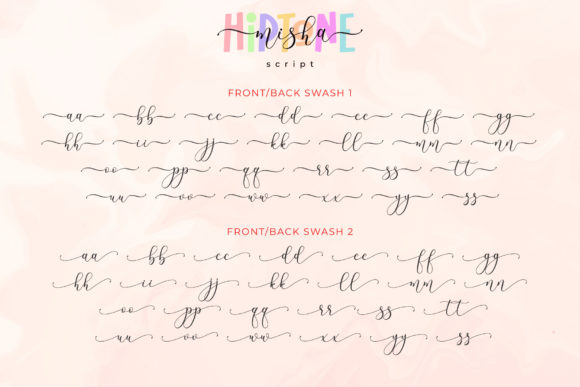 misha
script
FRONT/BACK SWASH 1
aa bb cc dd ee ff gg
hh ii jj kk ll mm nn
oo pp qq rr ss tt
uu vv ww xx yy ss
FRONT/BACK SWASH 2
aa bb cc dd ee ff gg
hh ii jj kk ll mm nn
oo pp qq rr ss tt
uu vv ww xx yy ss